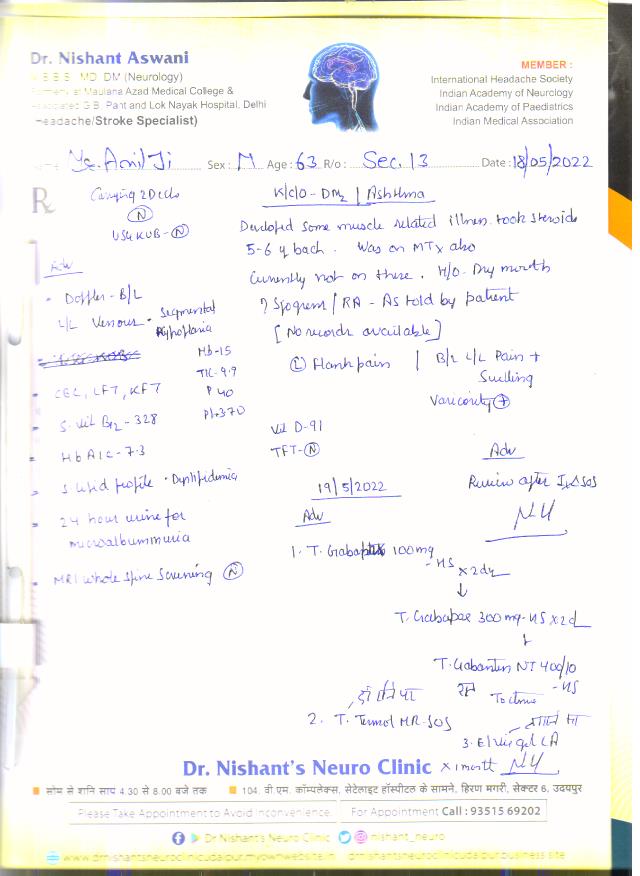 Dr. Nishant Aswani
M.B.B.S. MD. DM (Neurology)
Formerly at Maulana Azad Medical College &
Associated G.B. Pant and Lok Nayak Hospital, Delhi
(Headache/Stroke Specialist)
MEMBER :
International Headache Society
Indian Academy of Neurology
Indian Academy of Paediatrics
Indian Medical Association
Anil Ji Sex : M Age : 63 R/o : Sec. 13 Date : 18/05/2022
R
Carrying 2D echo
(N)
USG KUB - (N)
K/C/O - DM2 | Asthma
Developed some muscle related illness. took steroids
5-6 y back. Was on MTx also
Currently not on these. H/O - Dry mouth
? Sjogren / RA - As told by patient
[No records available]
(L) Flank pain | B/L L/L Pain +
Swelling
Varicosity +
Adv
- Doppler - B/L
L/L Venous - Segmental
Hypoplasia
- CBC, LFT, KFT
Hb - 15
TLC - 9.9
P 40
Pl - 370
- S. Vit B12 - 328
- HbA1C - 7.3
- S lipid profile - Dyslipidemia
- 24 hour urine for
microalbuminuria
- MRI whole spine screening (N)
Vit D - 91
TFT - (N)
Adv
Review after Ix / SOS
19/5/2022
Adv
1. T. 100mg
- HS x 2d
↓
T. 300 mg - HS x 2d
↓
T. Gabantin NT 400/10
- HS
To continue
2. T. Termol MR - SOS
3. gel LA
x 1 month
Dr. Nishant's Neuro Clinic
सोम से शनि सायं 4.30 से 8.00 बजे तक
104, वी.एम. कॉम्पलेक्स, सेटेलाइट हॉस्पीटल के सामने, हिरण मगरी, सेक्टर 6, उदयपुर
Please Take Appointment to Avoid Inconvenience. For Appointment Call : 93515 69202
Dr Nishant's Neuro Clinic nishant_neuro
www.drnishantsneuroclinicudaipur.myownwebsite.in drnishantsneuroclinicudaipur.business.site